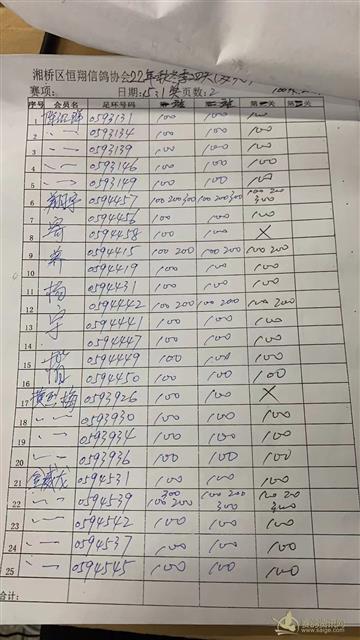 湘桥区恒翔信鸽协会22年秋冬季
赛项: 日期: 15:1 页数:2
序号 会员名 足环号码 一站 二站 第一关 第二关
1 0593131 100 100 100
2 〃 一 0593134 100 100 100
3 〃 一 0593139 100 100 100
4 〃 一 0593146 100 100 100
5 〃 一 0593149 100 100 100
6 翔宇 0594457 100 200 300 100 200 300 100 200 300
7 0594456 100 100 100
8 0594458 100 100 ×
9 0594415 100 200 100 200 100 200
10 0594419 100 100 100
11 杨 0594431 100 100 100
12 0594442 100 200 100 200 100 200
13 宁 0594441 100 100 100
14 0594447 100 100 100
15 0594449 100 100 100
16 0594450 100 100 100
17 黄烈梅 0593926 100 100 ×
18 〃 一 0593930 100 100 100
19 〃 一 0593934 100 100 100
20 〃 一 0593936 100 100 100
21 金威龙 0594531 100 100 100
22 〃 一 0594539 100 200 300 100 200 300 100 200 300
23 〃 一 0594542 100 100 100
24 〃 一 0594537 100 100 100
25 〃 一 0594545 100 100 100
合计:
赛鸽资讯网
www.saige.com